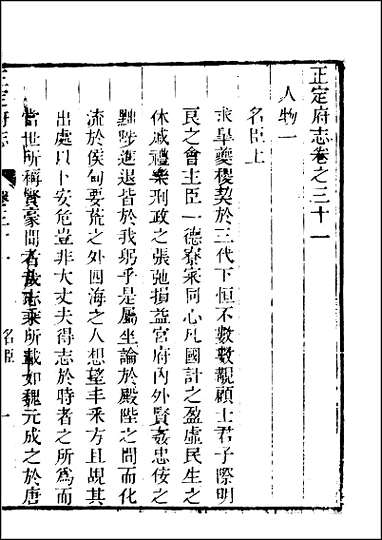 正定府志卷之三十一
人物一
名臣上
求皐夔稷契於三代下恒不數數覯顧士君子際明
良之會主臣一德寮寀同心凡國計之盈虛民生之
休戚禮樂刑政之張弛損益宮府內外賢姦忠佞之
黜陟進退皆於我躬乎是屬坐論於殿陛之間而化
流於侯甸要荒之外四海之人想望丰采方且覘其
出處以卜安危豈非大丈夫得志於時者之所為而
當世所稱賢豪間者哉志乘所載如魏元成之於唐
正定府志
卷三十一
名臣
一